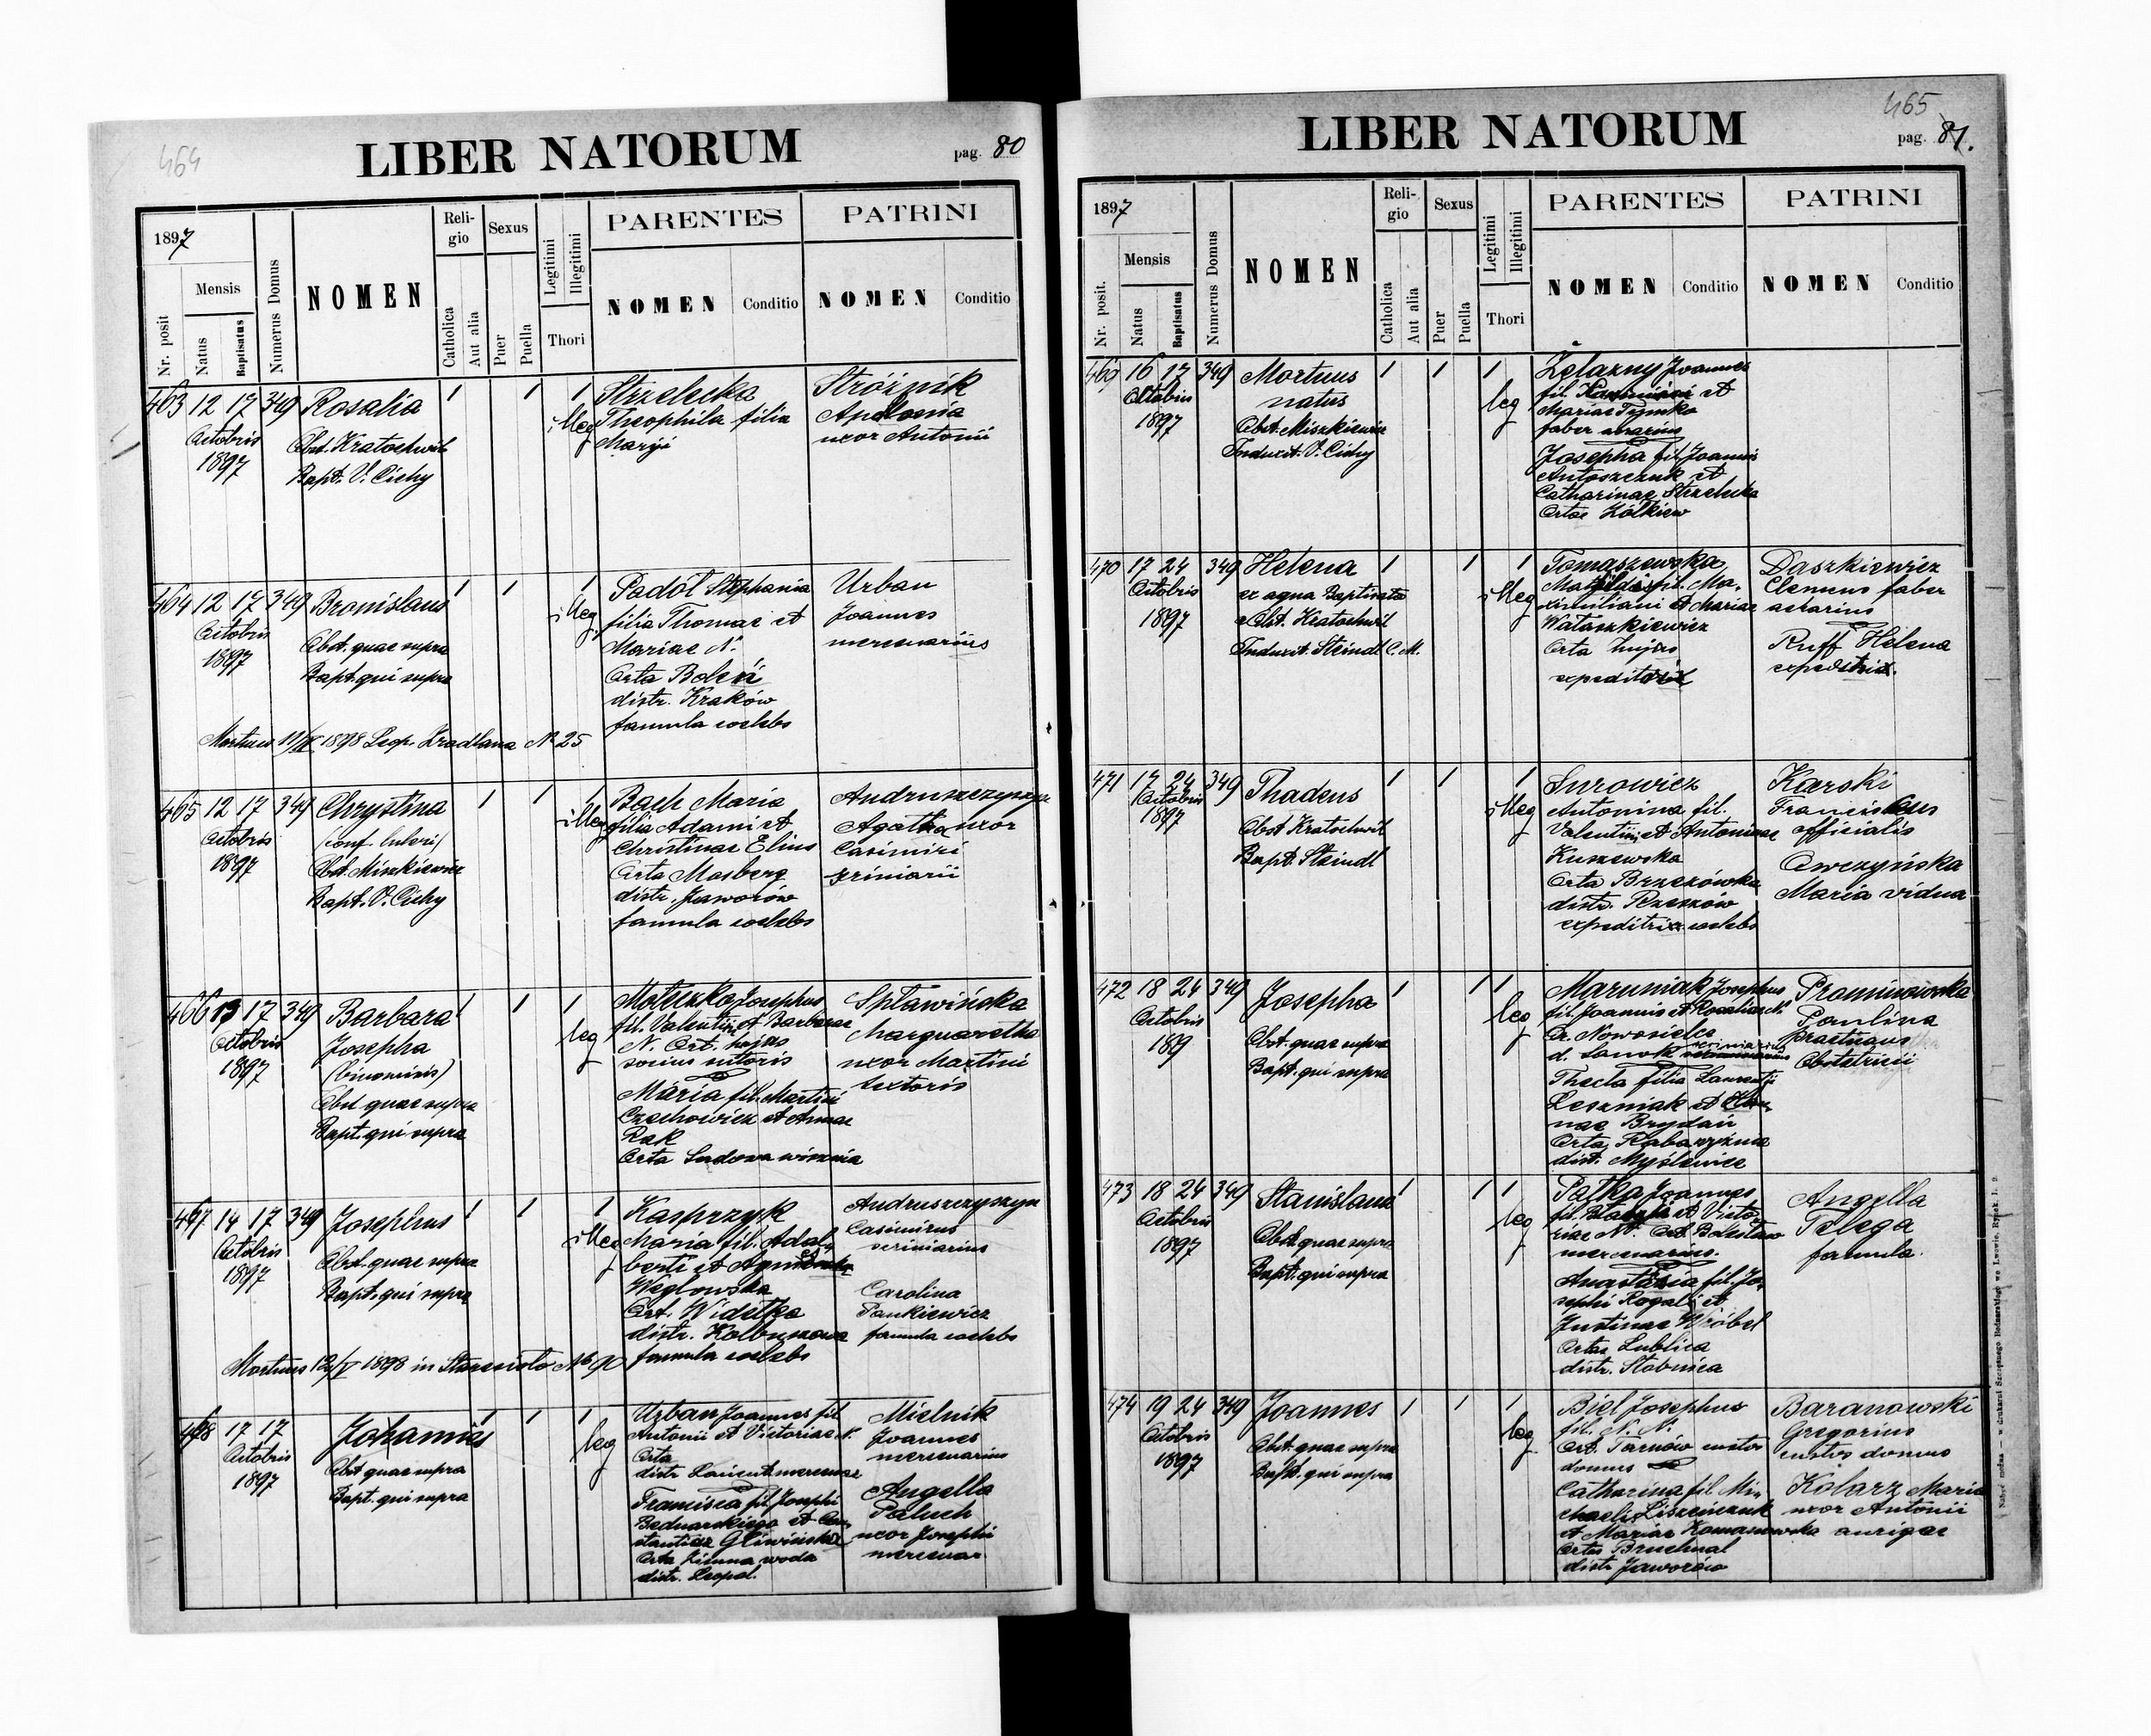 464
LIBER NATORUM
pag. 80
1897
Mensis
Nr. posit
Natus
Baptisatus
Numerus Domus
NOMEN
Religio
Catholica
Aut alia
Sexus
Puer
Puella
Legitimi
Illegitimi
Thori
PARENTES
NOMEN
Conditio
PATRINI
NOMEN
Conditio
463 12 17 349 Rosalia 1 1 1
Octobris
1897
Obst. Kratochwil
Bapt. V. Cichy
illeg
Strzelecka
Theophila filia
Maryi
Stróżnik
Antonia
uxor Antonii
464 12 17 349 Bronislaus 1 1 1
Octobris
1897
Obst. quae supra
Bapt. qui supra
illeg
Padół Stephania
filia Thomae et
Mariae N.
Orta Boleń
distr. Kraków
famula coelebs
Urban
Joannes
mercenarius
Mortuus 11/IV 1898 Leop. Zrodlana No 25
465 12 17 349 Chrystina 1 1 1
Octobris
1897
Obst. Miszkiewicz
Bapt. V. Cichy
illeg
Bach Maria
filia Adami et
Christinae Elius
Orta Mosberg
distr. Jaworów
famula coelebs
Andruszczyszyn
Agatha uxor
Casimiri
scriniarii
466 13 17 349 Barbara 1 1 1
Octobris
1897
Josepha
(binominis)
Obst quae supra
Bapt. qui supra
leg
Josephus
fil. Valentini et Barbarae
N. Ort. hujas
socius sutoris
Maria fil. Martini
Czechowicz et Annae
Rak
Orta Sudowa wisznia
Spławińska
Marguaretha
uxor Martini
textoris
467 14 17 349 Josephus 1 1 1
Octobris
1897
Obst. quae supra
Bapt. qui supra
illeg
Kasprzyk
Maria fil. Adal
berti et
Węglowska
Ort. Widełka
distr. Kolbuszowa
famula coelebs
Andruszczyszyn
Casimirus
scriniarius
Carolina
Pankiewicz
famula coelebs
Mortuus 12/V 1898 in Staresioło No 90
468 17 17 Johannes 1 1 1
Octobris
1897
Obst quae supra
Bapt. qui supra
leg
Urban Joannes fil
Antonii et Victoriae N.
Orta
distr Łańcut mercenar
Francisca fil. Josephi
Bednarskiego et Con
stantiae Gliwińska
Orta Zimna woda
distr. Leopol.
Mielnik
Joannes
mercenarius
Angella
Paluch
uxor Josephi
mercenar.
465
LIBER NATORUM
pag. 81.
1897
Mensis
Nr. posit.
Natus
Baptisatus
Numerus Domus
NOMEN
Religio
Catholica
Aut alia
Sexus
Puer
Puella
Legitimi
Illegitimi
Thori
PARENTES
NOMEN
Conditio
PATRINI
NOMEN
Conditio
469 16 17 349 Mortuus 1 1 1
natus
Octobris
1897
Obst. Miszkiewicz
Induxit. V. Cichy
leg
Żelazny Joannes
fil. et
Mariae Tymko
faber aerarius
Josepha fil. Joannis
Antoszczuk et
Catharinae Strzelecka
Ortae Żółkiew
470 17 24 349 Helena 1 1 1
Octobris
1897
ex aqua Baptisata
Obst. Kratochwil
Induxit. Steindl C. M.
illeg
Tomaszewska
Mathilda fil. Ma-
ximiliani et Mariae
Wataszkiewicz
Orta hujas
expeditrix
Daszkiewicz
Clemens faber
aerarius
Ruff Helena
expeditrix.
471 17 24 349 Thadeus 1 1 1
Octobris
1897
Obst Kratochwil
Bapt. Steindl
illeg
Surowicz
Antonina fil.
Valentini et Antoninae
Kuszewska
Orta Brzezówka
distr. Rzeszów
expeditrix coelebs
Karski
Franciscus
officialis
Owczyńska
Maria vidua
472 18 24 349 Josepha 1 1 1
Octobris
189
Obst. quae supra
Bapt. qui supra
leg
Maruniak Josephus
fil. Joannis et Rosaliae N.
Or. Nowosielce
d. Sanok scriniarius
Thecla filia Laurentii
Leszniak et
nae Brydan
Orta
dist. Myślenice
Prominowska
Paulina
practicans
Obstetricii
473 18 24 349 Stanislaus 1 1 1
Octobris
1897
Obst. quae supra
Bapt. qui supra
leg
Pałka Joannes
fil. Blasii et Victo
riae N. Ort. Bolesław
mercenarius.
Anastasia fil. Jo
sephi Rogali et
Justinae Wróbel
Ortae Lublica
distr. Stobnica
Angella
Telega
famula.
474 19 24 349 Joannes 1 1 1
Octobris
1897
Obst. quae supra
Bapt. qui supra
leg
Biel Josephus
fil. N. N.
Ort. Tarnów custos
domus
Catharina fil. Mi-
chaeli Liszeńczuk
et Mariae Romanowska
Ortus Bruchnal
distr Jaworów
Baranowski
Gregorius
custos domus
Kolarz Maria
uxor Antonii
aurigae